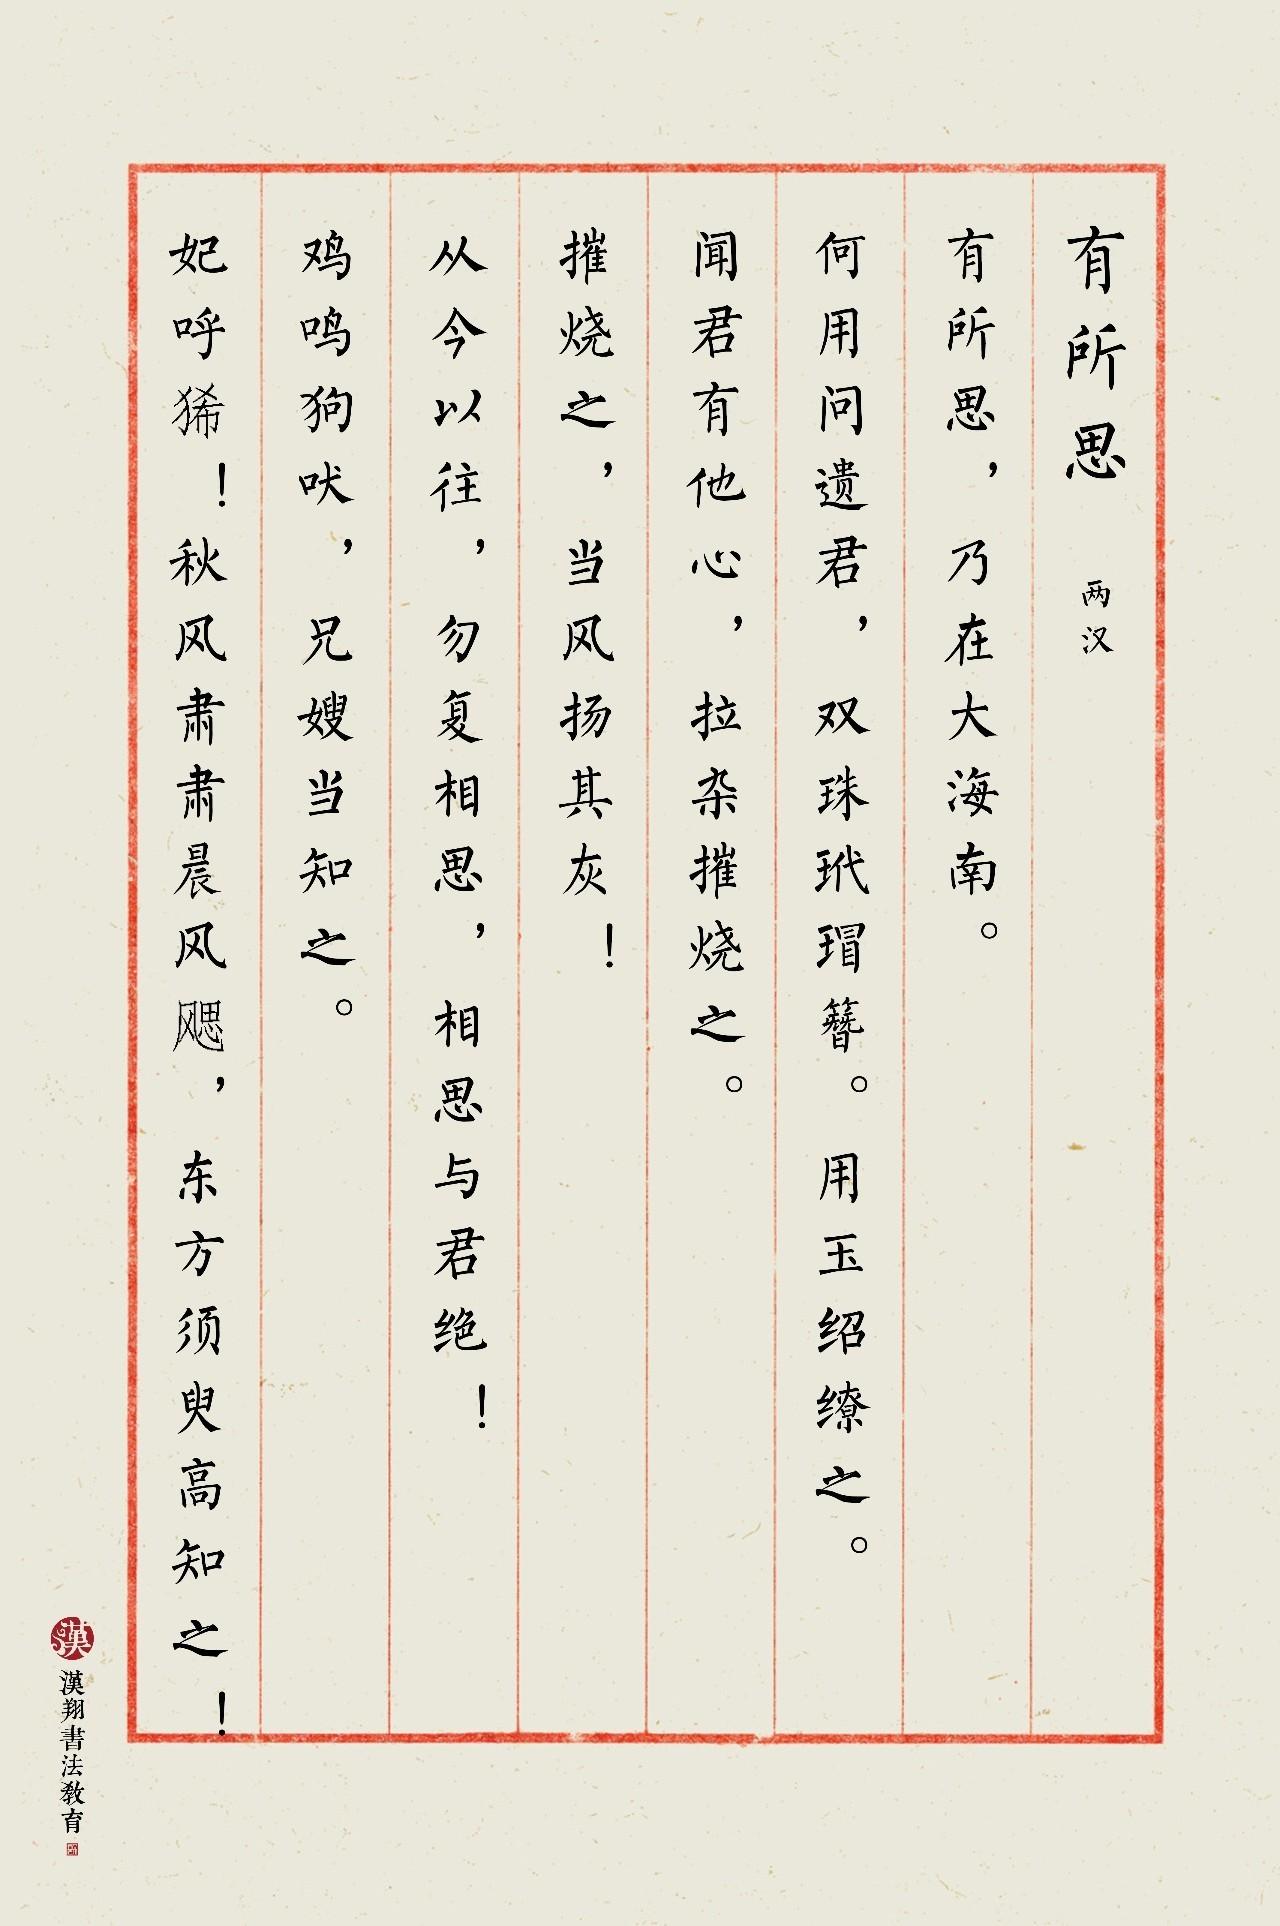 有所思 两汉
有所思，乃在大海南。
何用问遗君，双珠玳瑁簪。用玉绍缭之。
闻君有他心，拉杂摧烧之。
摧烧之，当风扬其灰！
从今以往，勿复相思，相思与君绝！
鸡鸣狗吠，兄嫂当知之。
妃呼狶！秋风肃肃晨风飔，东方须臾高知之！
漢
漢翔書法教育